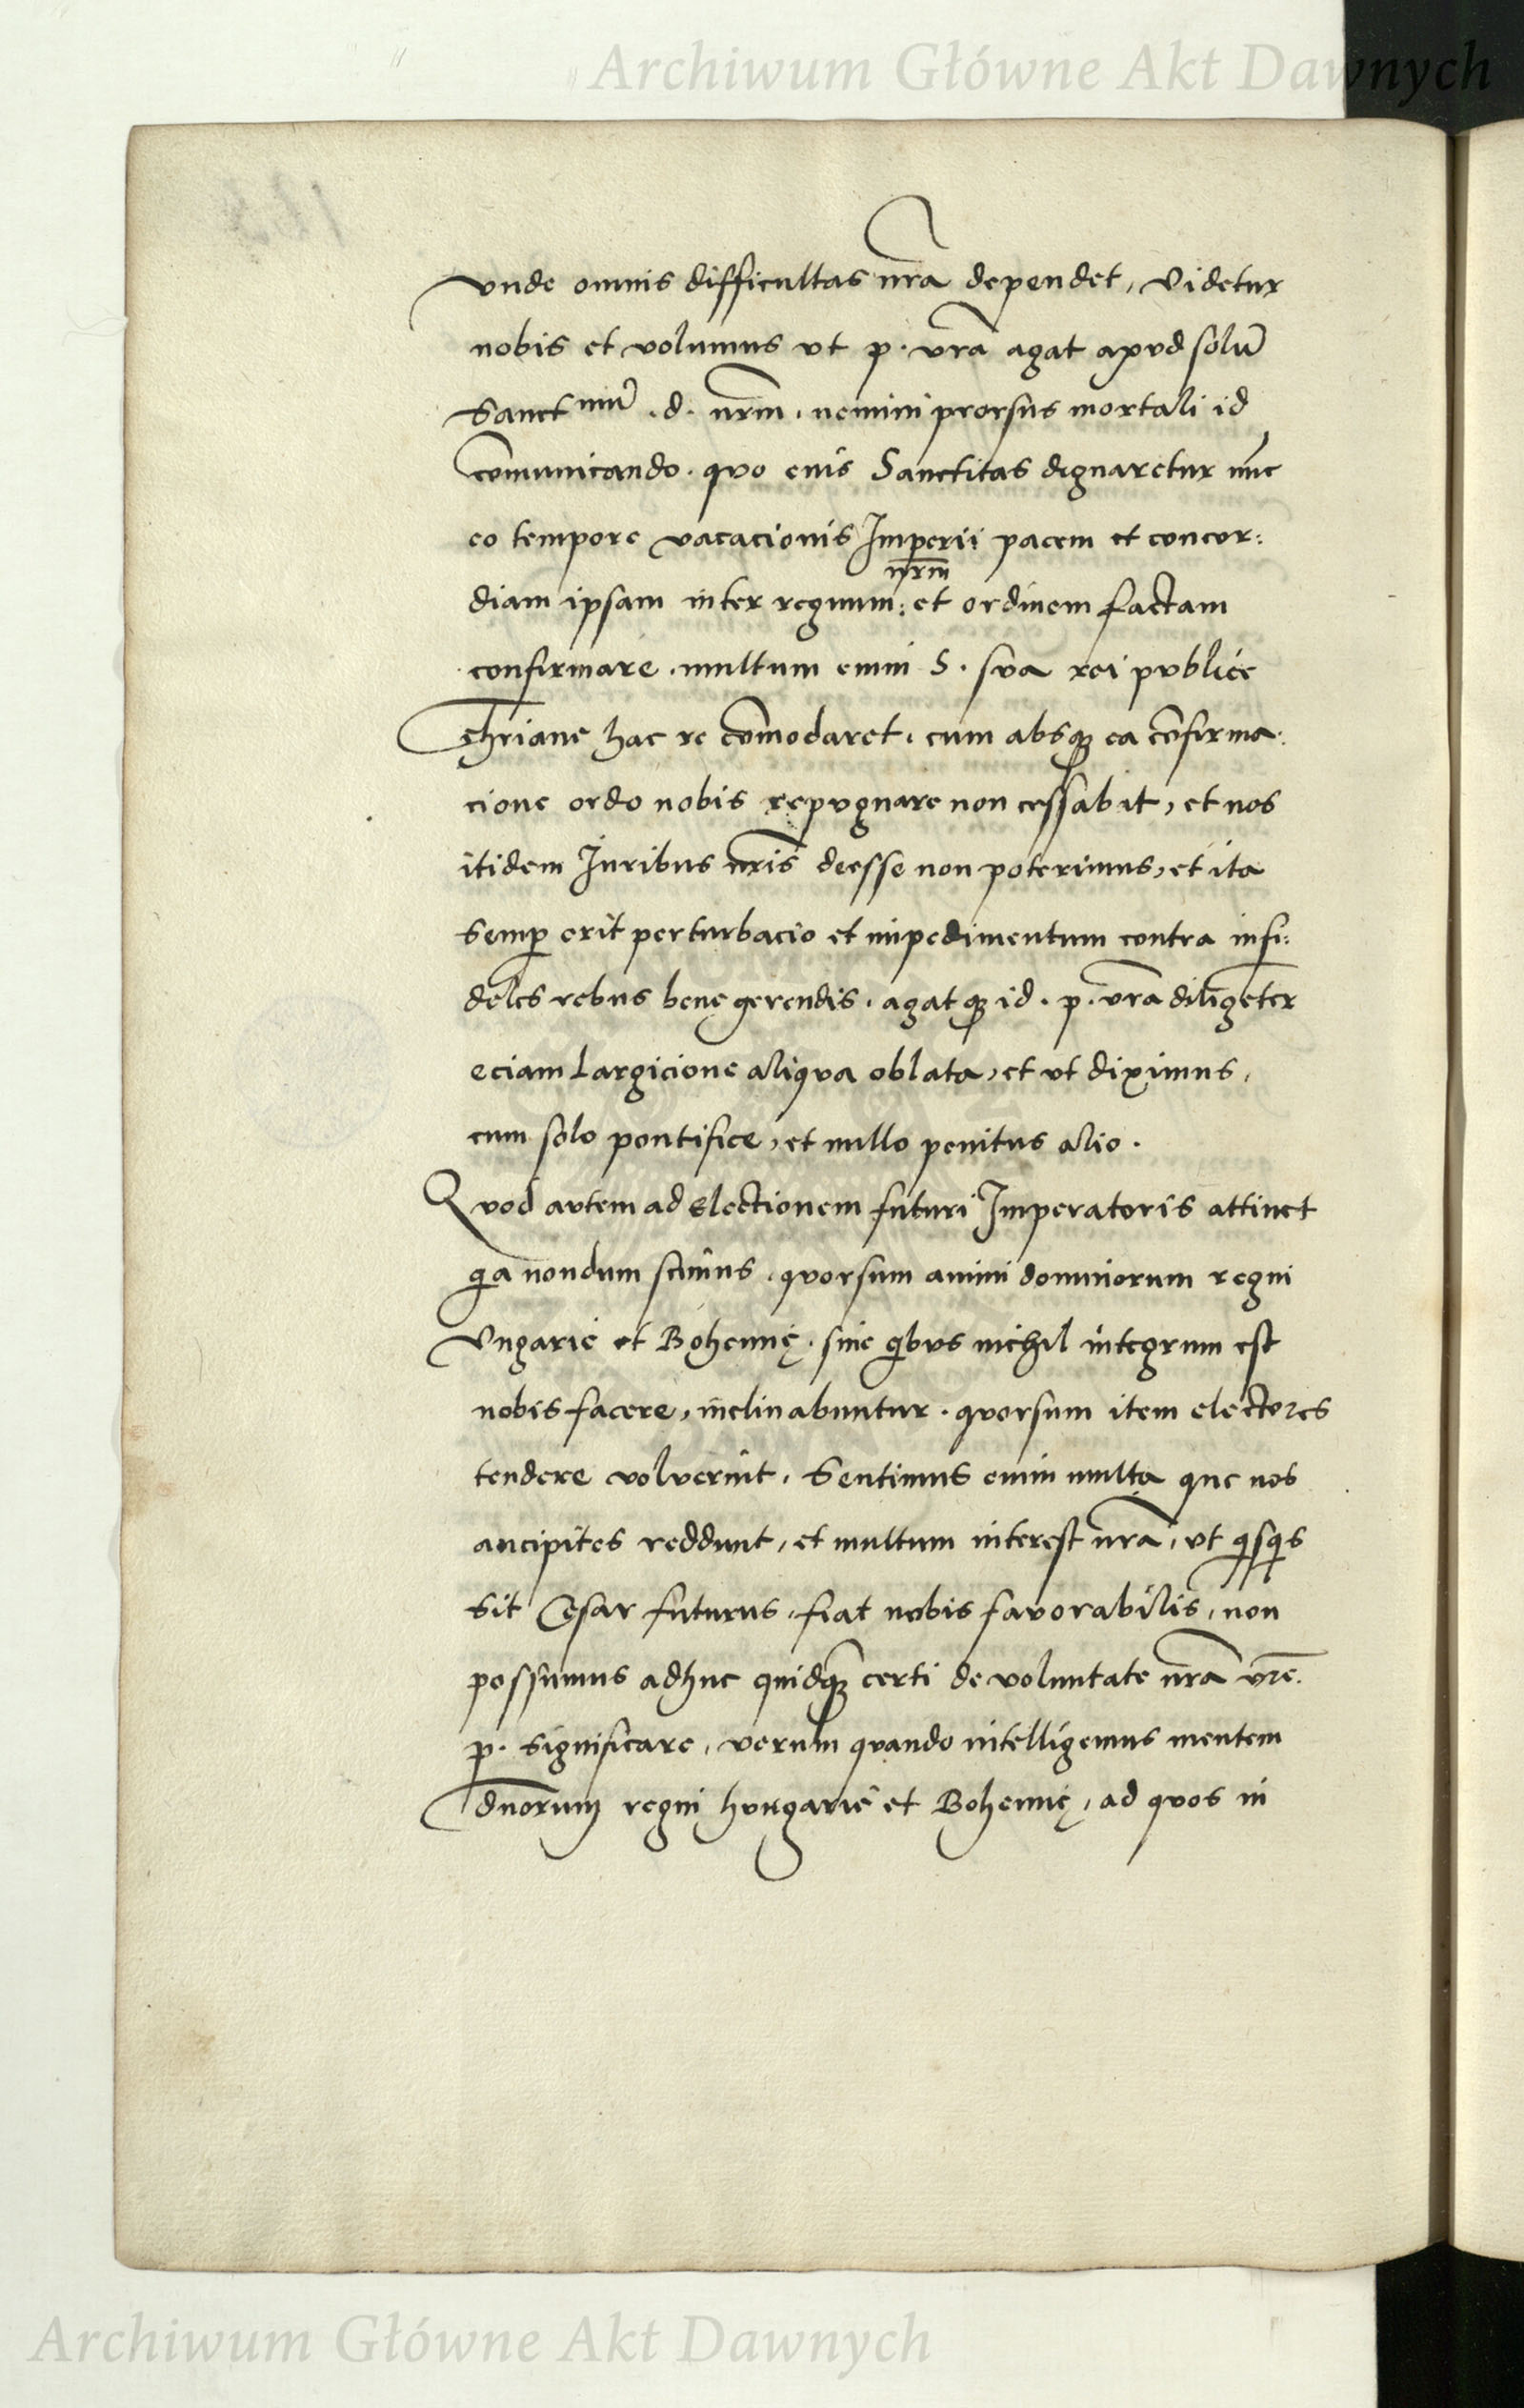 Archiwum Główne Akt Dawnych
vnde omnis difficultas nr̃a dependet, Videtur
nobis et volumus vt p. vr̃a agat apvd solũ
Sanctmũ .d. nr̃m. nemini prorsus mortali id
cõmunicando. qvo eius Sanctitas dignaretur nũc
eo tempore vacacionis Imperii pacem et concor:
nr̃m
diam ipsam inter regnum: et ordinem factam
confirmare. multum enim S. sva rei pvblice
Chr̃iane hac re cõmodaret. cum absqꝫ ea cõfirma:
cione ordo nobis repvgnare non cessabit, et nos
itidem Iuribus nr̃is deesse non poterimus, et ita
semꝑ erit perturbacio et impedimentum contra infi:
deles rebus benę gerendis. agatqꝫ id. p. vr̃a diligẽter
eciam Largicione aliqva oblata, et vt diximus,
cum solo pontifice, et nullo penitus alio.
Qvod avtem ad Electionem futuri Imperatoris attinet
qa nondum scimus. qvorsum animi dominorum regni
Vngarie et Bohemię. sine qibvs nichil integrum est
nobis facere, inclinabuntur. qvorsum item electores
tendere volverint. Sentimus enim multa que nos
ancipites reddunt, et multum interest nr̃a, vt qisqis
sit Cęsar futurus, fiat nobis favorabilis, non
possumus adhuc quidqꝫ certi de voluntate nr̃a vr̃e.
p. significare, verum qvando intelligemus mentem
dñorum regni hvngarie et Bohemię, ad qvos in
Archiwum Główne Akt Dawnych